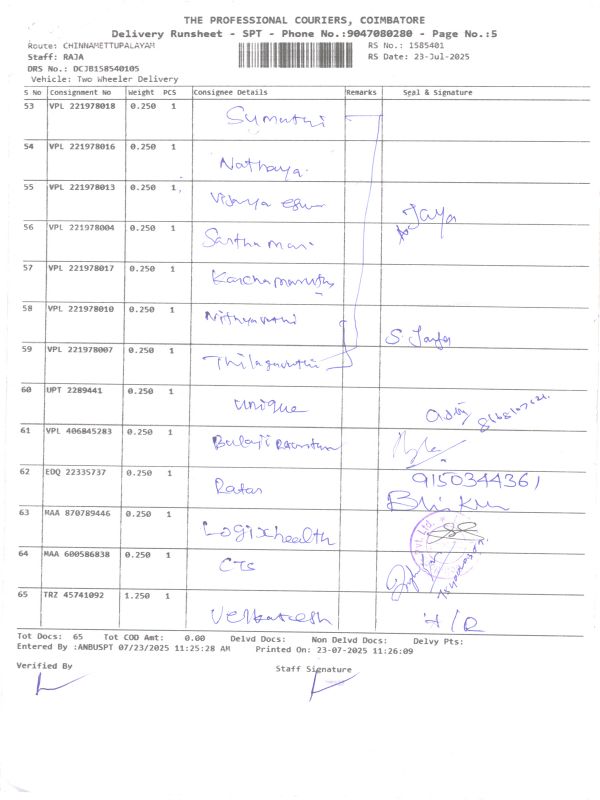 THE PROFESSIONAL COURIERS, COIMBATORE
Delivery Runsheet - SPT - Phone No.:9047080280 - Page No.:5
Route: CHINNAMETTUPALAYAM RS No.: 1585401
Staff: RAJA RS Date: 23-Jul-2025
DRS No.: DCJB158540105
Vehicle: Two Wheeler Delivery
S No Consignment No Weight PCS Consignee Details Remarks Seal & Signature
53 VPL 221978018 0.250 1 Sumathi
54 VPL 221978016 0.250 1 Nathaya
55 VPL 221978013 0.250 1 Vijaya
Jaya
56 VPL 221978004 0.250 1
57 VPL 221978017 0.250 1
58 VPL 221978010 0.250 1 Nithyavathi
S.
59 VPL 221978007 0.250 1 Thilagavathi
60 UPT 2289441 0.250 1 Unique
61 VPL 406845283 0.250 1 Balaji
62 EDQ 22335737 0.250 1 Ratan
9150344361
63 MAA 870789446 0.250 1 Logixhealth
64 MAA 600586838 0.250 1 CTS
65 TRZ 45741092 1.250 1 Venkatesh
H/R
Tot Docs: 65 Tot COD Amt: 0.00 Delvd Docs: Non Delvd Docs: Delvy Pts:
Entered By :ANBUSPT 07/23/2025 11:25:28 AM Printed On: 23-07-2025 11:26:09
Verified By Staff Signature